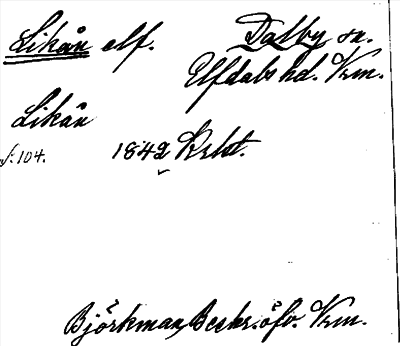 Likån elf. Dalby sn.
Elfdals hd. Vrm.
Likån
s. 104. 1842 Krlst.
Björkman, Beskr. öfv. Vrm.